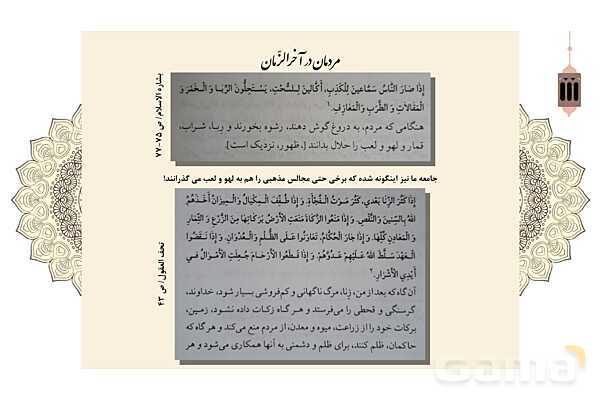 مردمان در آخرالزّمان
إِذَا صَارَ النَّاسُ سَمَّاعِينَ لِلْكَذِبِ، أَكَّالِينَ لِلسُّحْتِ، يَسْتَحِلُّونَ الرِّبَا وَ الْخَمْرَ وَ
الْمَقَالَاتِ وَ الطَّرَبَ وَ الْمَعَازِفَ.¹
هنگامی که مردم، به دروغ گوش دهند، رشوه بخورند و ربا، شراب،
قمار و لهو و لعب را حلال بدانند [،ظهور، نزدیک است].
بشاره الاسلام/ ص ۷۵-۷۷
جامعه ما نیز اینگونه شده که برخی حتی مجالس مذهبی را هم به لهو و لعب می گذرانند!
إِذَا كَثُرَ الزِّنَا بَعْدِي، كَثُرَ مَوْتُ الْفُجْأَةِ. وَ إِذَا طُفِّفَ الْمِكْيَالُ وَ الْمِيزَانُ أَخَذَهُمُ
اللهُ بِالسِّنِينَ وَ النَّقْصِ. وَ إِذَا مَنَعُوا الزَّكَاةَ مَنَعَتِ الْأَرْضُ بَرَكَاتِهَا مِنَ الزَّرْعِ وَ الثِّمَارِ
وَ الْمَعَادِنِ كُلِّهَا. وَ إِذَا جَارَ الْحُكَّامُ، تَعَاوَنُوا عَلَى الظُّلْمِ وَ الْعُدْوَانِ. وَ إِذَا نَقَضُوا
الْعَهْدَ سَلَّطَ اللهُ عَلَيْهِمْ عَدُوَّهُمْ. وَ إِذَا قَطَعُوا الْأَرْحَامَ جُعِلَتِ الْأَمْوَالُ فِي
أَيْدِي الْأَشْرَارِ.²
آن گاه که بعد از من، زنا، مرگ ناگهانی و کم‌فروشی بسیار شود، خداوند،
گرسنگی و قحطی را می‌فرستد و هر گاه زکات داده نشود، زمین،
برکات خود را از زراعت، میوه و معدن، از مردم منع می‌کند و هر گاه که
حاکمان، ظلم کنند، برای ظلم و دشمنی به آنها همکاری می‌شود و هر
تحف العقول/ ص ۴۳
Gama